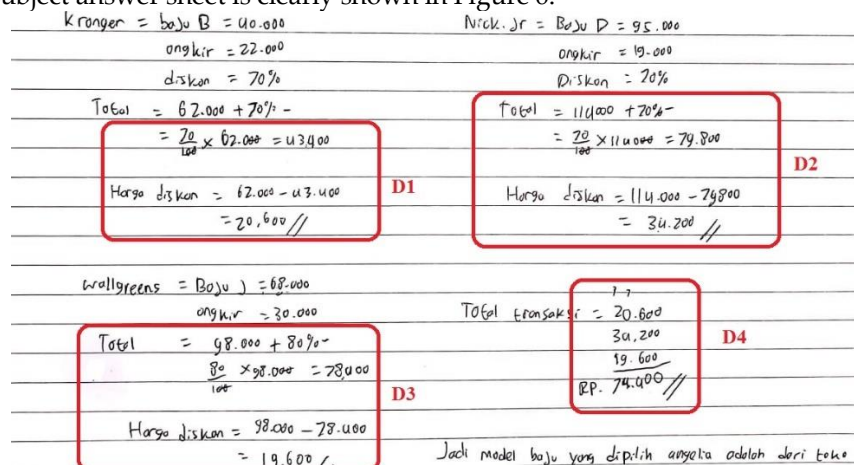 subject answer sheet is clearly shown in Figure 6.
Kronger = baju B = 40.000
ongkir = 22.000
diskon = 70%
Total = 62.000 + 70% -
= 70/100 x 62.000 = 43.400
Harga diskon = 62.000 - 43.400
= 20,600 //
D1
Nick.Jr = Baju D = 95.000
ongkir = 19.000
Diskon = 70%
Total = 114000 + 70% -
= 70/100 x 114000 = 79.800
Harga diskon = 114.000 - 79800
= 34.200 //
D2
wallgreens = Baju J = 68.000
ongkir = 30.000
Total = 98.000 + 80% -
80/100 x 98.000 = 78,400
Harga diskon = 98.000 - 78.400
= 19.600 /
D3
1 1
Total transaksi = 20.600
34,200
19.600
RP. 74.400 //
D4
Jadi model baju yang dipilih angelia adalah dari toko